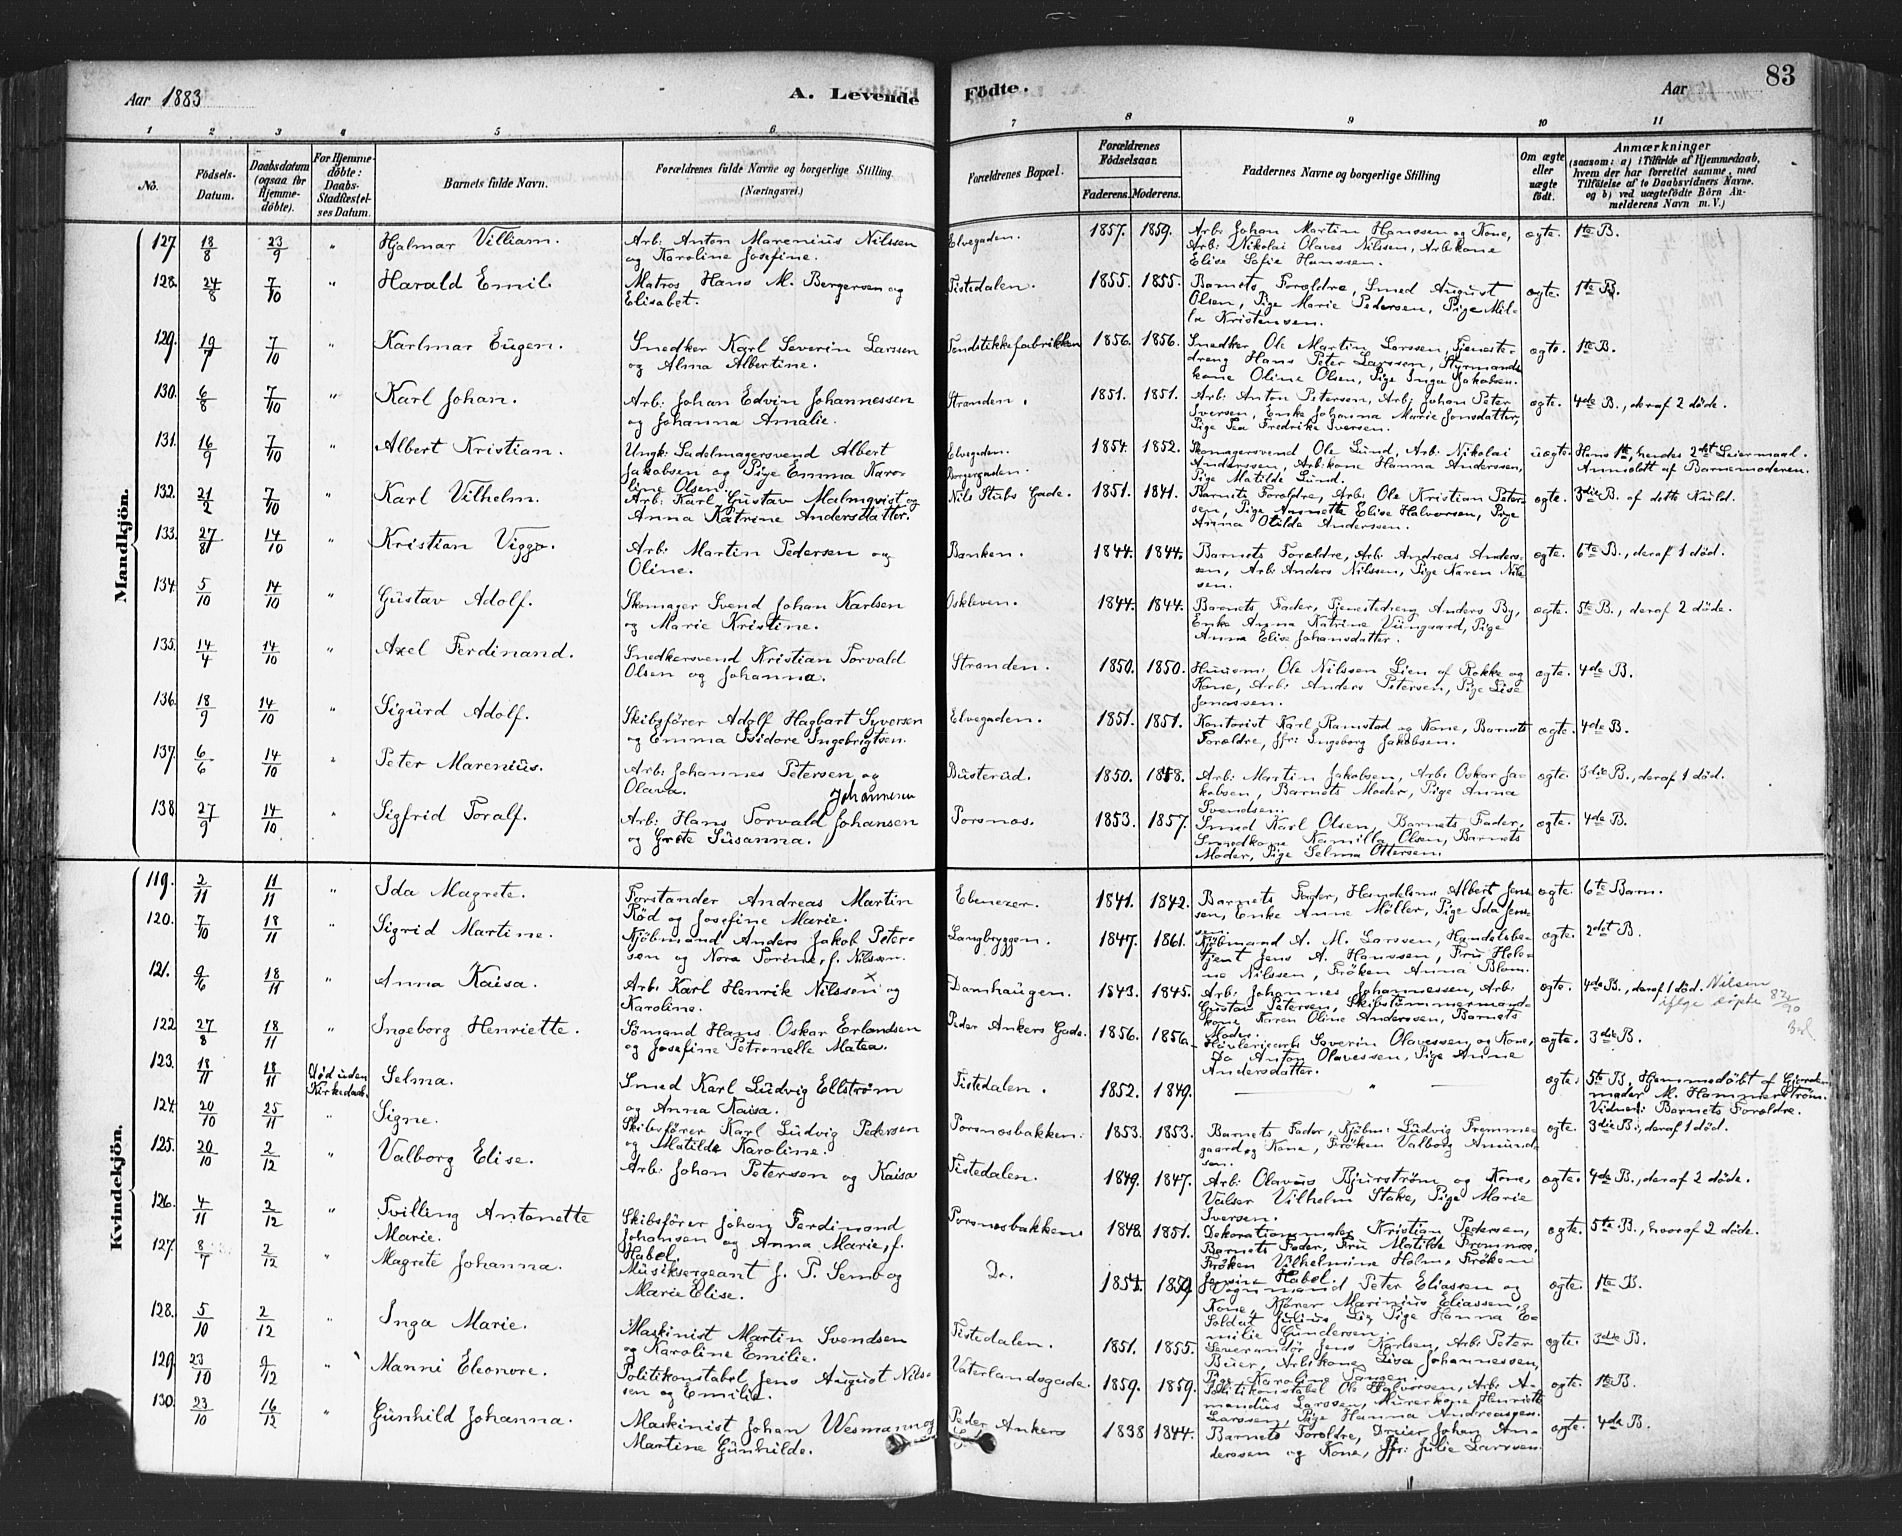 Aar 1883
A. Levende
Födte.
Aar
83
1 2 3 4 5 6 7 8 9 10 11
No.
Födsels-Datum.
Daabsdatum (ogsaa for Hjemme-döbte).
For Hjemme-döbte: Daabs-Stadfæstel-ses Datum.
Barnets fulde Navn.
Forældrenes fulde Navne og borgerlige Stilling (Næringsvei.)
Forældrenes Bopæl.
Forældrenes Födselsaar.
Faderens. Moderens.
Faddernes Navne og borgerlige Stilling
Om ægte eller uægte födt.
Anmærkninger
(saasom: a) i Tilfælde af Hjemmedaab, hvem der har forrettet samme, med Tilföielse af to Daabsvidners Navne. og b) ved uægtefödte Börn An-melderens Navn m. V.)
Mandkjön.
127. 18/8 23/9 " Hjalmar Villiam. Arb: Anton Marenius Nilssen og Karoline Josefine. Elvegaden. 1857. 1859. Arb: Johan Martin Hanssen og Kone, Arb: Nikolai Olaves Nilssen, Arb:kone Elise Sofie Hanssen. ægte. 1ste B.
128. 24/8 7/10 " Harald Emil Matros Hans M. Bergersen og Elisabet. Tistedalen. 1855. 1855. Barnets Forældre, Smed August Olsen, Pige Marie Pedersen, Pige Mil-la Kristensen. ægte. 1ste B.
129. 19/7 7/10 " Karlmar Eugen. Snedker Karl Severin Larssen og Alma Albertine. Tendstikkefabrikken 1856. 1856. Snedker Ole Martin Larssen, Tjeneste-dreng Hans Peter Larssen, Styrmands-kone Oline Olsen, Pige Inga Jakobsen. ægte. 1ste B.
130. 6/8 7/10 " Karl Johan. Arb: Johan Edvin Johannessen og Johanna Amalie. Stranden. 1851. 1851. Arb: Anton Petersen, Arb: Johan Peter Iversen, Enke Johanna Marie Jonsdatter, Pige Tea Fredrike Iversen. ægte. 4de B., deraf 2 döde.
131. 16/9 7/10 Albert Kristian. Ungk: Sadelmagersvend Albert Jakobsen og Pige Emma Karo-line Olsen. Elvegaden. Borgergaden. 1854. 1852. Skomagersvend Ole Lund, Arb: Nikolai Anderssen, Arb:kone Hanna Anderssen, Pige Matilde Lund. uægte. Hans 1ste, hendes 2det Leiermaal. Anmeldt af Barnemoderen.
132. 21/2 7/10 " Karl Vilhelm. Arb: Karl Gustav Malmqvist og Anna Katrine Andersdatter. Nils Stubs Gade. 1851. 1841. Barnets Forældre, Arb: Ole Kristian Peter-sen, Pige Annette Elise Halvorsen, Pige Anna Otilde Andersen. ægte. 3die B. af dette Kuld.
133. 27/8 14/10 " Kristian Viggo. Arb: Martin Pedersen og Oline. Banken. 1844. 1844. Barnets Forældre, Arb: Andreas Anders-sen, Arb: Anders Nilssen, Pige Karen Nils-sen. ægte. 6te B., deraf 1 död.
134. 5/10 14/10 " Gustav Adolf. Skomager Svend Johan Karlsen og Marie Kristine. Oskleven. 1844. 1844. Barnets Fader, Tjenestedreng Anders By, Enke Anna Katrine Viingaard, Pige Anna Elise Johansdatter. ægte. 5te B., deraf 2 döde.
135. 14/4 14/10 " Axel Ferdinand. Snedkersvend Kristian Torvald Olsen og Johanna. Stranden. 1850. 1850. Huusm: Ole Nilssen Lien af Rokke og Kone, Arb: Anders Petersen, Pige Lise Jonassen. ægte. 4de B.
136. 18/9 14/10 " Sigurd Adolf. Skibsförer Adolf Hagbart Syversen og Emma Isidore Ingebrigtsen. Elvegaden. 1851. 1851. Kontorist Karl Ramstad og Kone, Barnets Forældre, Jfr: Ingeborg Jakobsen. ægte. 4de B.
137. 6/6 14/10 " Peter Marenius. Arb: Johannes Petersen og Olava. Busterud. 1850. 1858. Arb: Martin Jakobsen, Arb: Oskar Ja-kobsen, Barnets Moder, Pige Anna Svendsen. ægte. 3die B., deraf 1 död.
138. 27/9 14/10 " Sigfrid Toralf. Johannesen Arb: Hans Torvald Johansen og Grete Susanna. Porsnæs. 1853. 1857. Smed Karl Olsen, Barnets Fader, Smedkone Kamilla Olsen, Barnets Moder, Pige Selma Ottersen. ægte. 4de B.
Kvindekjön.
119. 2/11 11/11 " Ida Magrete. Forstander Andreas Martin Röd og Josefine Marie. Ebenezer. 1841. 1842. Barnets Fader, Handelsm: Albert Jens-sen, Enke Anne Möller, Pige Ida Jens-sen. ægte. 6te Barn.
120. 7/10 18/11 " Sigrid Martine. Kjöbmand Anders Jakob Peter-sen og Nora Torine, f. Nilssen. Langbryggen. 1847. 1861. Kjöbmand A. M. Larssen, Handelsbe-tjent Jens A. Hanssen, Fru Hele-ne Nilssen, Fröken Anna Blom. ægte. 2det B.
121. 9/6 18/11 " Anna Kaisa. Arb: Karl Henrik Nilssen x og Karoline. Damhaugen. 1843. 1845. Arb: Johannes Johannessen, Arb: Gustav Petersen, Skibstömmermands-kone Karen Oline Anderssen, Barnets Moder. ægte. 4de B., deraf 1 död. Nilsen
122. 27/8 18/11 " Ingeborg Henriette. Sömand Hans Oskar Erlandsen og Josefine Petronelle Matea. Peder Ankers Gade. 1856. 1856. Hövleriearb: Severin Olavessen og Kone, Do Anton Olavessen, Pige Anne Andersdatter. ægte. 3die B.
123. 18/11 18/11 Död uden Kirkedaab. Selma. Smed Karl Ludvig Ellström og Anna Kaisa. Tistedalen. 1852. 1849. " ægte. 5te B. Hjemmedöbt af Gjorde-moder M. Hammerström. Vidner: Barnets Forældre.
124. 20/10 25/11 " Signe. Skibsförer Karl Ludvig Pedersen og Matilde Karoline. Porsnæsbakken. 1853. 1853. Barnets Fader, Kjöbm: Ludvig Fremme-gaard og Kone, Fröken Valborg Amund-sen. ægte. 3die B., deraf 1 död.
125. 20/10 2/12 " Valborg Elise. Arb: Johan Petersen og Kaisa Tistedalen. 1849. 1847. Arb: Olavus Bjurström og Kone, Valser Vilhelm Stake, Pige Marie Iversen. ægte. 4de B., deraf 2 döde.
126. 4/11 2/12 " Tvilling Antonette Marie. Skibsförer Johan Ferdinand Johansen og Anna Marie, f. Habel. Porsnæsbakken 1848. 1851. Dekorationsmaler Kristian Pedersen, Barnets Fader, Fru Matilde Fromnæs, Fröken Vilhelmine Holm, Fröken Jensine Habel. ægte. 5te B., hvoraf 2 döde.
127. 8/7 2/12 " Magrete Johanna. Musiksergeant J. P. Semb og Marie Elise. Do. 1854. 1859 Vognmand Peter Eliassen og Kone, Kjörer Marinius Eliassen, Soldat Julius Lie, Pige Hanna E-milie Gundersen. ægte. 1ste B.
128. 5/10 2/12 " Inga Marie. Maskinist Martin Svendsen og Karoline Emilie. Tistedalen. 1851. 1855. Leverandör Jens Karlsen, Arb: Peter Buer, Arb:kone Lisa Johannessen, Pige Karoline Jansen. ægte. 3die B.
129. 23/10 9/12 " Manni Eleonore. Politikonstabel Jens August Nils-sen og Emilie. Vaterlandsgade. 1859. 1859. Politikonstabel Ole Halvorsen, Arb: A-mandus Larssen, Murerkone Henriette Larssen, Pige Hanna Andreassen. ægte. 1ste B.
130. 23/10 16/12 " Gunhild Johanna. Maskinist Johan Wesmann og Martine Gunhilde. Peder Ankers 1838 1844. Barnets Forældre, Dreier Johan An-derssen og Kone, Jfr: Julie Larssen. ægte. 4de B.